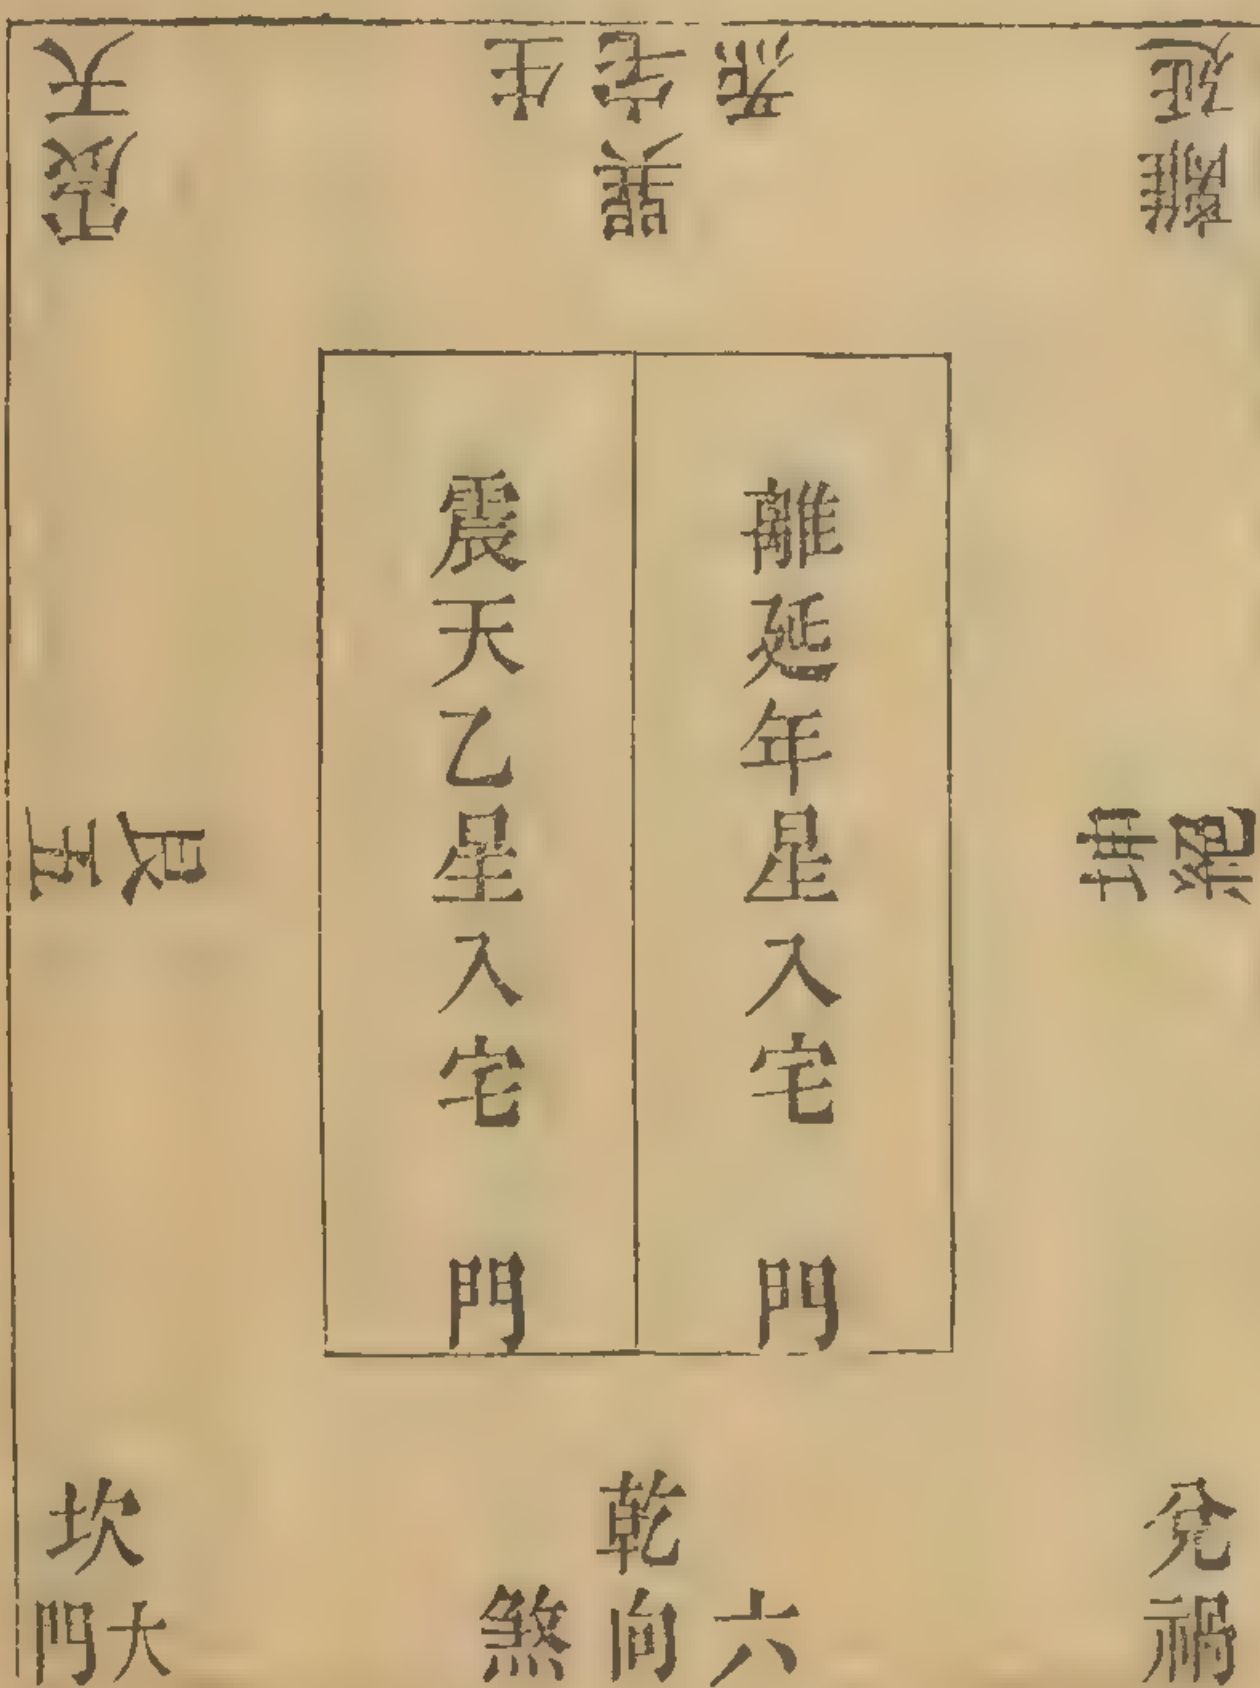 離延
巽
生宅炁
震天
坤絕
離延年星入宅
門
震天乙星入宅
門
艮五
兌禍
乾
六向煞
坎
大門